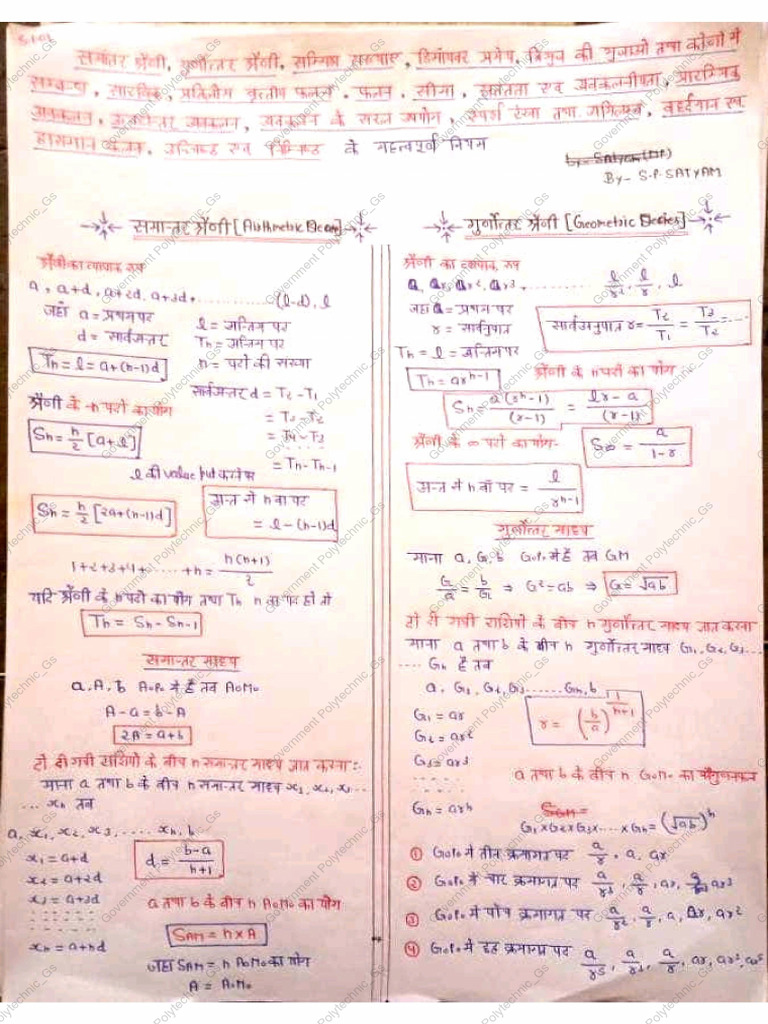 समांतर श्रेणी, गुणोत्तर श्रेणी, सम्मिश्र संख्याएं, द्विपद प्रमेय, त्रिभुज की भुजाओं तथा कोणों में
सम्बन्ध, सारणिक, प्रतिलोम वृत्तीय फलन, फलन, सीमा, सततता एवं अवकलनीयता, प्रारम्भिक
अवकलन, अवकलन के सरल उपयोग, स्पर्श रेखा तथा अभिलम्ब, वर्द्धमान एवं
ह्रासमान फलन, उच्चिष्ठ एवं निम्निष्ठ के महत्वपूर्ण नियम
By- S.P. SATYAM
समान्तर श्रेणी [Arithmetic Series]
श्रेणी का व्यापक रूप
a, a+d, a+2d, a+3d, ............ (l-d), l
जहाँ a = प्रथम पद
l = अन्तिम पद
d = सार्वअन्तर
Tn = अन्तिम पद
Tn = l = a+(n-1)d
n = पदों की संख्या
सार्वअन्तर d = T2 - T1
श्रेणी के n पदों का योग
= T3 - T2
Sn = n/2 [a+l]
= T4 - T3
= Tn - Tn-1
l की value put करने पर
Sn = n/2 [2a+(n-1)d]
अन्त से n वा पद
= l-(n-1)d
1+2+3+4+......+n = n(n+1)/2
यदि श्रेणी के n पदों का योग तथा Tn n वा पद हो तो
Tn = Sn - Sn-1
समान्तर माध्य
a, A, b A.P. में हैं तब A.M.
A-a = b-A
2A = a+b
दो दी गयी राशियों के बीच n समान्तर माध्य ज्ञात करना:-
माना a तथा b के बीच n समान्तर माध्य x1, x2, x3...
... xn तब
a, x1, x2, x3, ..... xn, b
x1 = a+d
d = b-a/n+1
x2 = a+2d
x3 = a+3d
a तथा b के बीच n A.M. का योग
SAM = n×A
xn = a+nd
जहाँ SAM = n A.M. का योग
A = A.M.
गुणोत्तर श्रेणी [Geometric Series]
श्रेणी का व्यापक रूप
a, ar, ar2, ar3, ............ l/r2, l/r, l
जहाँ a = प्रथम पद
r = सार्वनुपात
सार्वअनुपात r = T2/T1 = T3/T2 = .....
Tn = l = अन्तिम पद
Tn = arn-1
श्रेणी के n पदों का योग
Sn = a(rn-1)/(r-1) = lr-a/(r-1)
श्रेणी के ∞ पदों का योग-
S∞ = a/1-r
अन्त से n वाँ पद = l/rn-1
गुणोत्तर माध्य
माना a, G, b G.P. में हैं तब GM
G/a = b/G ⇒ G2=ab ⇒ G=√ab
दो दी गयी राशियों के बीच n गुणोत्तर माध्य ज्ञात करना
माना a तथा b के बीच n गुणोत्तर माध्य G1, G2, G3...
.... Gn हैं तब
a, G1, G2, G3....... Gn, b
G1 = ar
r = (b/a)1/n+1
G2 = ar2
G3 = ar3
a तथा b के बीच n G.M. का गुणनफल
Gn = arn
G1×G2×G3×....×Gn = (√ab)n
① G.P. में तीन क्रमागत पद a/r, a, ar
② G.P. में चार क्रमागत पद a/r3, a/r, ar, ar3
③ G.P. में पाँच क्रमागत पद a/r2, a/r, a, ar, ar2
④ G.P. में छह क्रमागत पद a/r5, a/r3, a/r, ar, ar3, ar5
Government Polytechnic_Gs